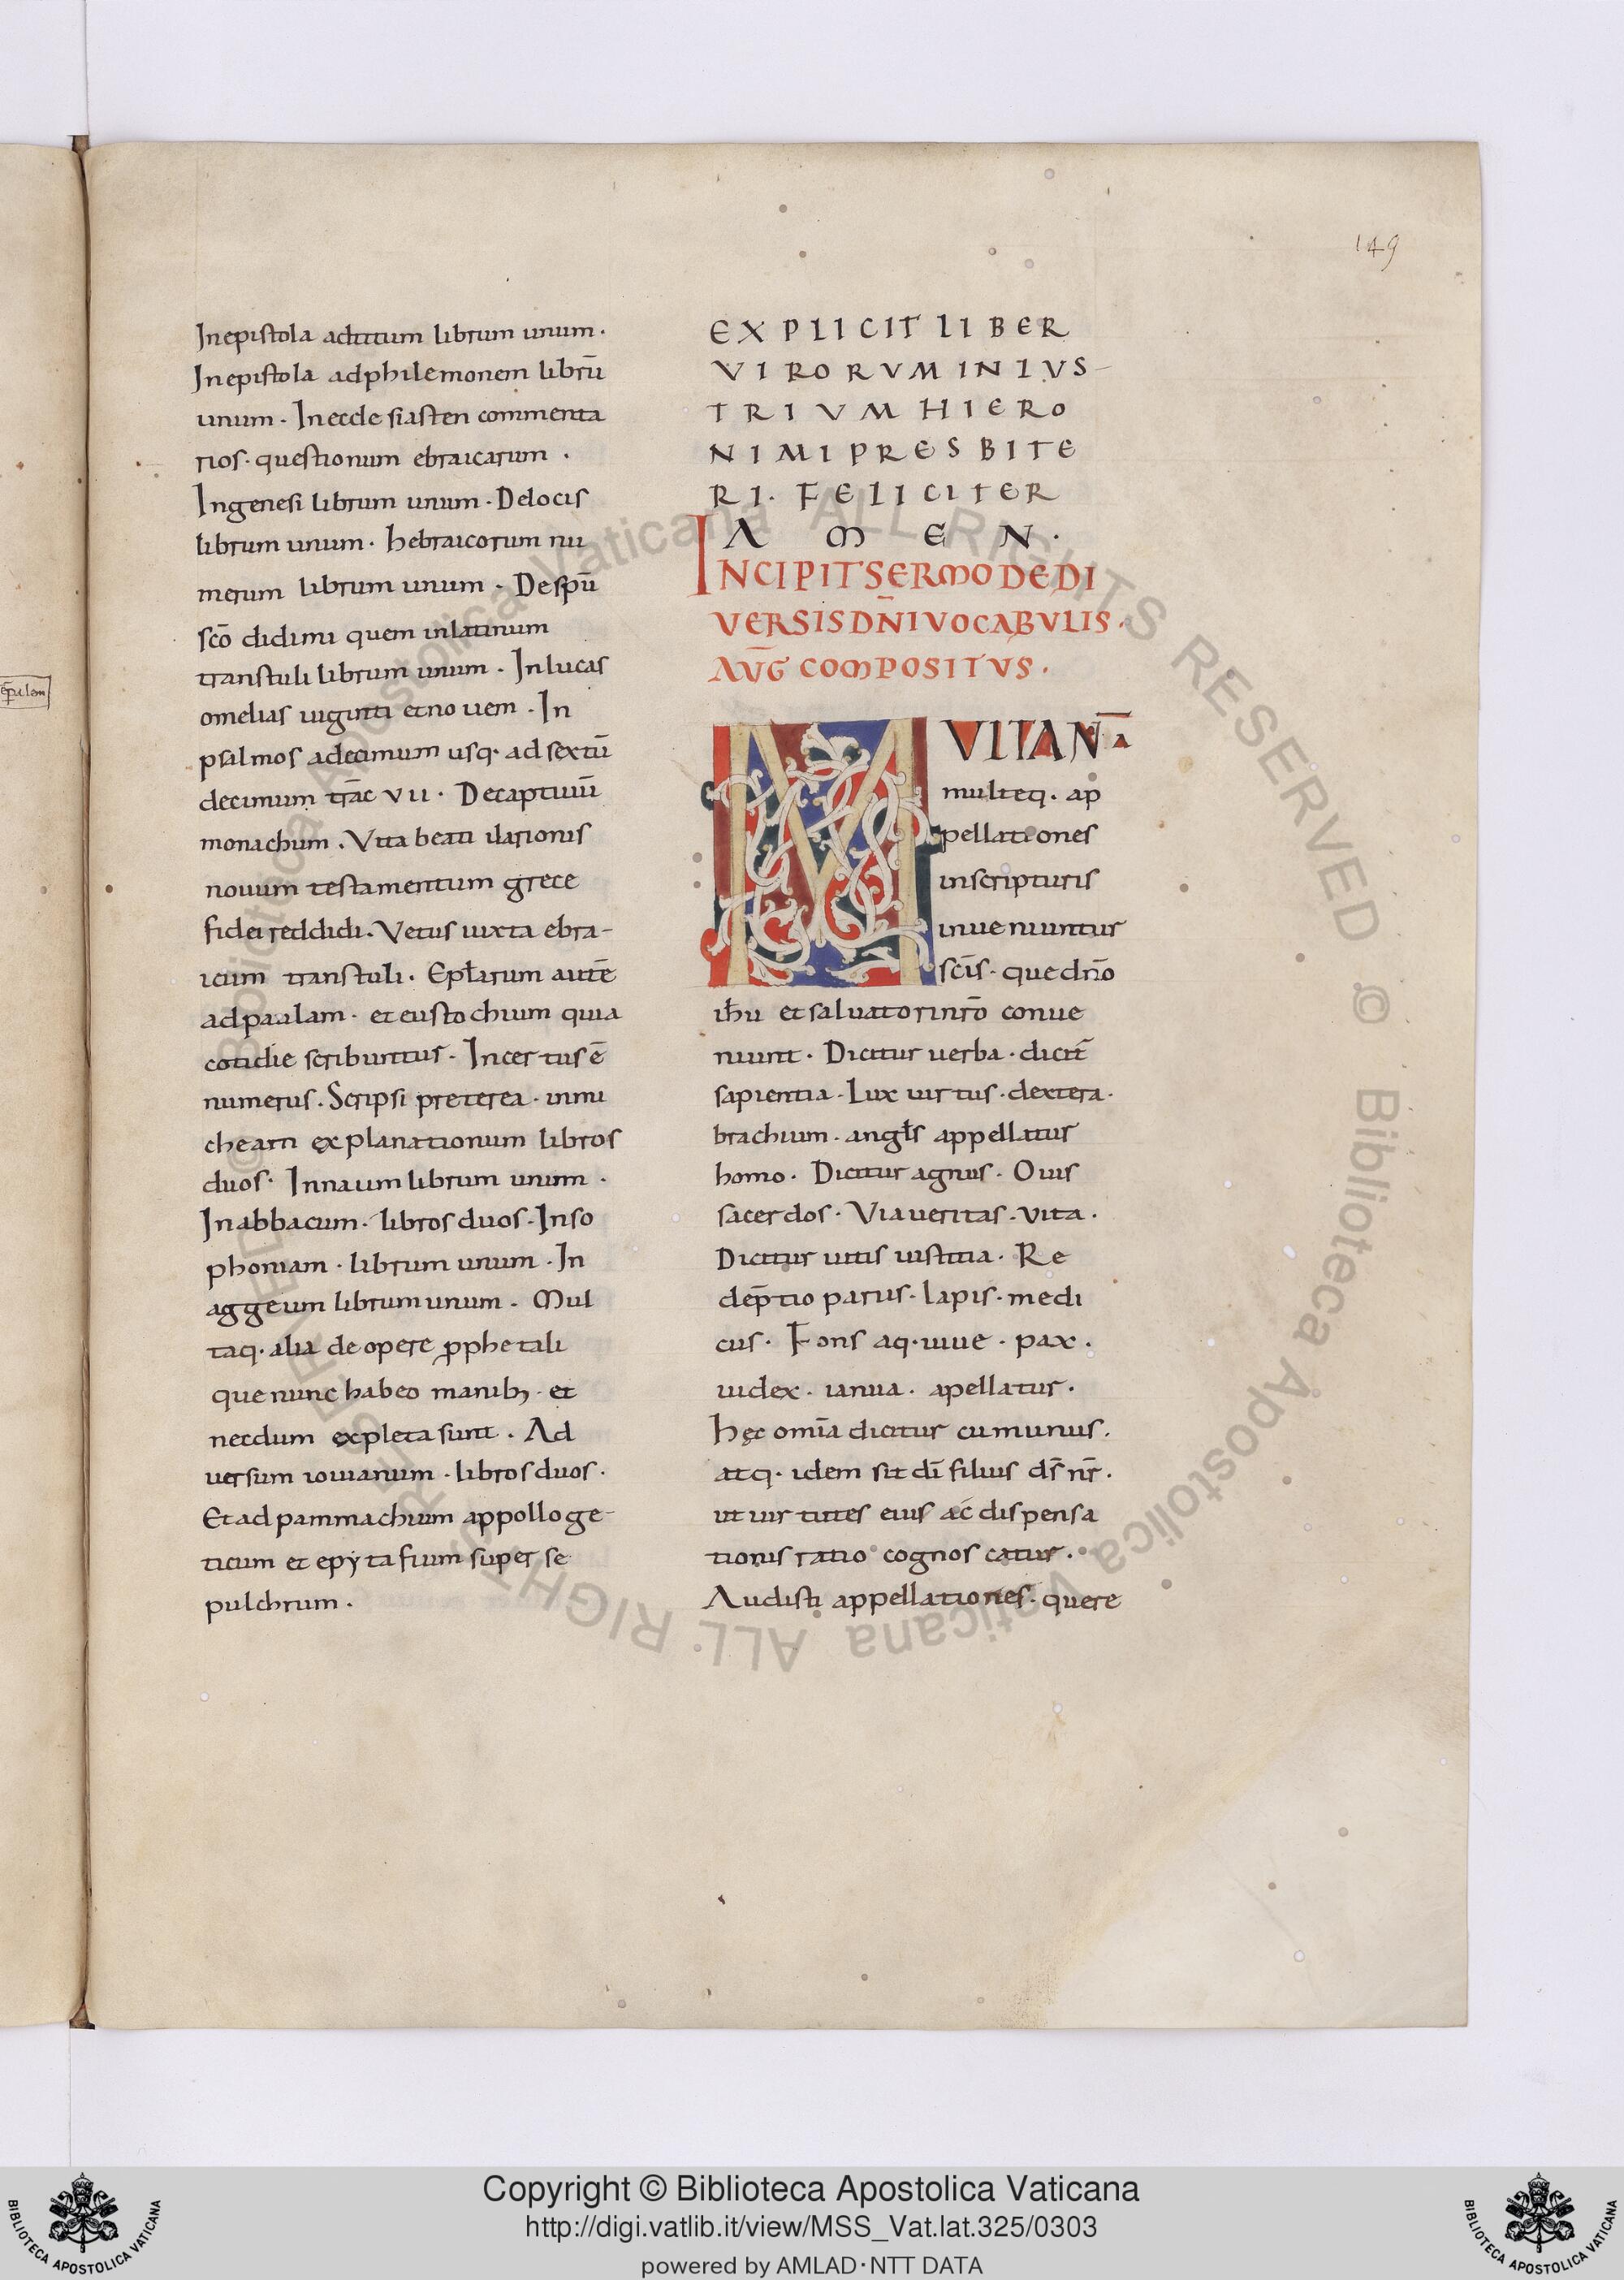 149
Inepistola adtitum librum unum·
Inepistola adphilemonem librū
unum· Ineccle siasten commenta
rios· questionum ebraicarum ·
Ingenesi librum unum· Delocis
librum unum· hebraicorum nu
merum librum unum· De spū
scō didimi quem inlatinum
transtuli librum unum· Inlucas
omelias uiginti etno uem· In
psalmos adecimum usq· ad sextū
decimum trāc VII· Decaptiuū
monachum. Vita beati ilarionis
nouum testamentum grece
fidei reddidi. Vetus iuxta ebra-
icum transtuli. Epƚarum autē
adpaulam· et eustochium quia
cotidie scribuntur· Incertus ē
numerus. Scripsi preterea· inmi
cheam explanationum libros
duos· Innaum librum unum ·
Inabbacum· libros duos· Inso
phoniam· librum unum· In
aggeum librum unum· Mul
taq· alia de opere ꝓphetali
que nunc habeo manibꝫ· et
necdum expleta sunt. Ad
uersum iouianum· libros duos·
Et ad pammachium appolloge-
ticum et epytafium super se
pulchrum.
EXPLICIT LIBER
VIRORVM INLVS-
TRIVM HIERO
NIMI PRESBITE
RI· FELICITER
AMEN·
INCIPIT SERMO DE DI
VERSIS DN̄I VOCABVLIS·
AVḠ COMPOSITVS·
MVITAN̄A
multeq· ap
pellationes
inscripturis
inueniuntur
scīs· que dnō
ihu et saluatori nrō conue
niunt· Dicitur uerba· dicit̄
sapientia· Lux uirtus· dextera·
brachium· angƚs appellatur
homo· Dicitur agnus· Ouis
sacerdos· Via ueritas· vita·
Dicitur uitis iustitia· Re
dēptio parus· lapis· medi
cus· Fons aq· uiue· pax·
iudex· ianua· apellatur·
hęc omīa dicitur cumunus·
atq· idem sit dī filius ds̄ nr̄·
ut uirtutes eius ac dispensa
tionis ratio cognoscatur·
Audisti appellationes· quere
© Biblioteca Apostolica Vaticana ALL RIGHTS RESERVED
Copyright © Biblioteca Apostolica Vaticana
http://digi.vatlib.it/view/MSS_Vat.lat.325/0303
powered by AMLAD·NTT DATA
BIBLIOTECA APOSTOLICA VATICANA
BIBLIOTECA APOSTOLICA VATICANA